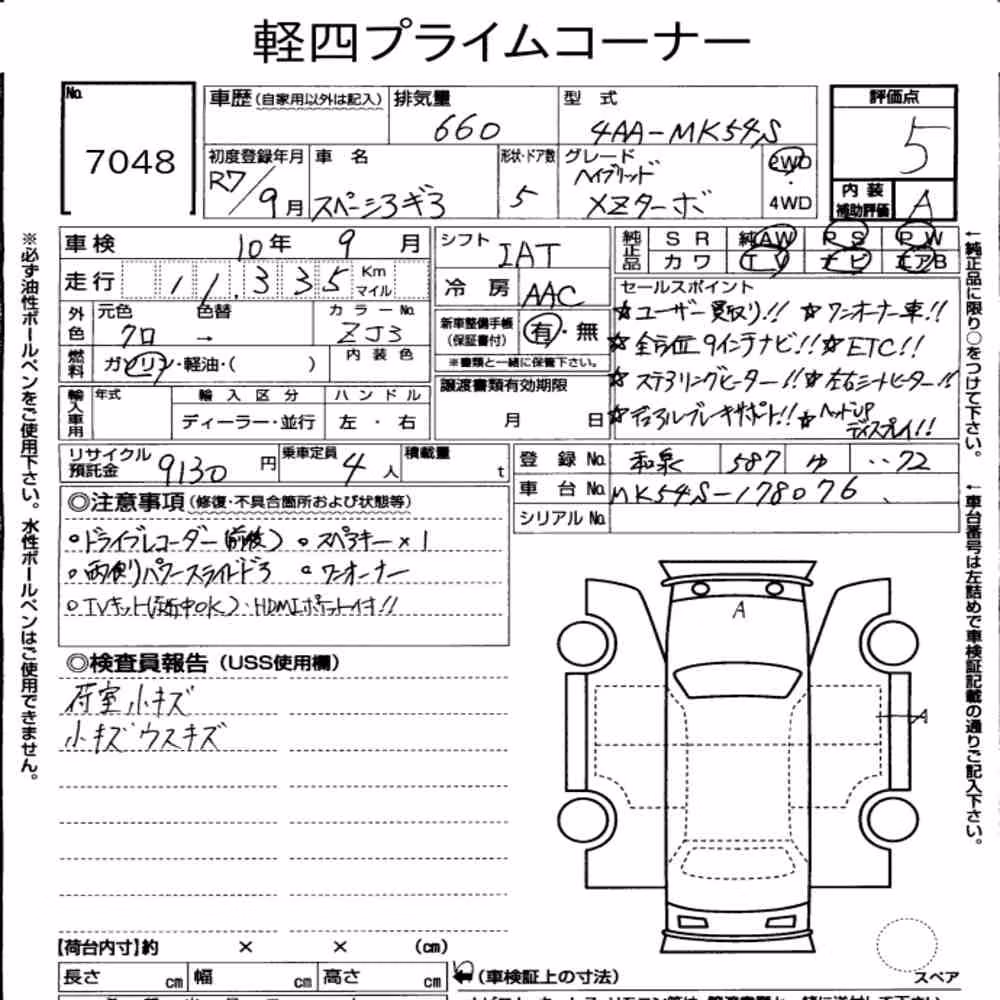 軽四プライムコーナー
No. 7048
車歴(自家用以外は記入) 排気量 660 型式 4AA-MK54S
評価点 5
内装補助評価 A
初度登録年月 R7/9月 車名 スペーシアギア 形状・ドア数 5 グレード ハイブリッド XZターボ 2WD・4WD
車検 10年 9月 シフト IAT
純正品 SR 純AW PS PW
カワ TV ナビ エアB
走行 11,335 Km マイル 冷房 AAC
外色 元色 クロ → 色替 カラーNo. ZJ3
新車整備手帳(保証書付) 有・無
※書類と一緒に保管下さい。
燃料 ガソリン・軽油・( ) 内装色
譲渡書類有効期限 月 日
輸入車用 年式 輸入区分 ディーラー・並行 ハンドル 左・右
セールスポイント
☆ユーザー買取り!! ☆ワンオーナー車!!
☆全方位9インチナビ!! ☆ETC!!
☆ステアリングヒーター!! ☆左右シートヒーター!!
☆デュアルブレーキサポート!! ☆ヘッドUP
ディスプレイ!!
リサイクル預託金 9130円 乗車定員 4人 積載量 t
登録No. 和泉 587 ゆ ‥72
車台No. MK54S-178076
シリアルNo.
◎注意事項(修復・不具合箇所および状態等)
○ドライブレコーダー(前後) ○スペアキー×1
○両側パワースライドドア ○ワンオーナー
○TVキット(走行中OK)・HDMIポケット付!!
◎検査員報告(USS使用欄)
荷室小キズ
小キズ ウスキズ
A
A
【荷台内寸】約 × × (cm)
長さ cm 幅 cm 高さ cm ←(車検証上の寸法)
スペア
※必ず油性ボールペンをご使用下さい。水性ボールペンはご使用できません。
←純正品に限り○をつけて下さい。
←車台番号は左詰めで車検証記載の通りご記入下さい。